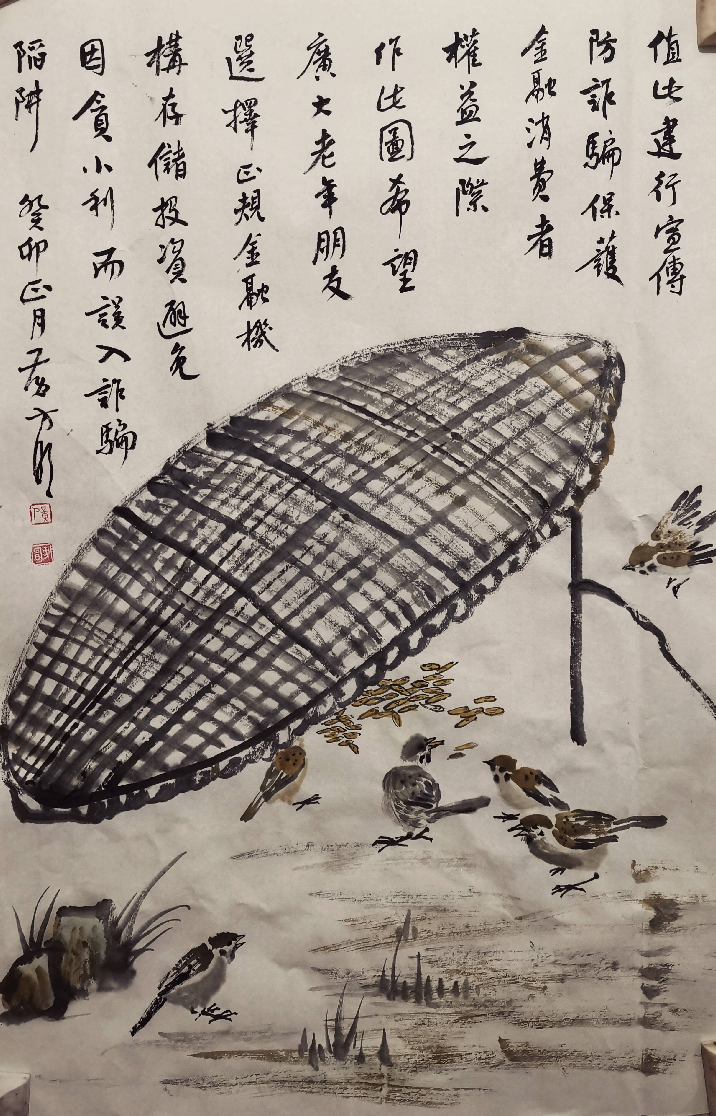 值此建行宣傳
防詐騙保護
金融消費者
權益之際
作此圖希望
廣大老年朋友
選擇正規金融機
構存儲投資避免
因貪小利而誤入詐騙
陷阱 癸卯正月